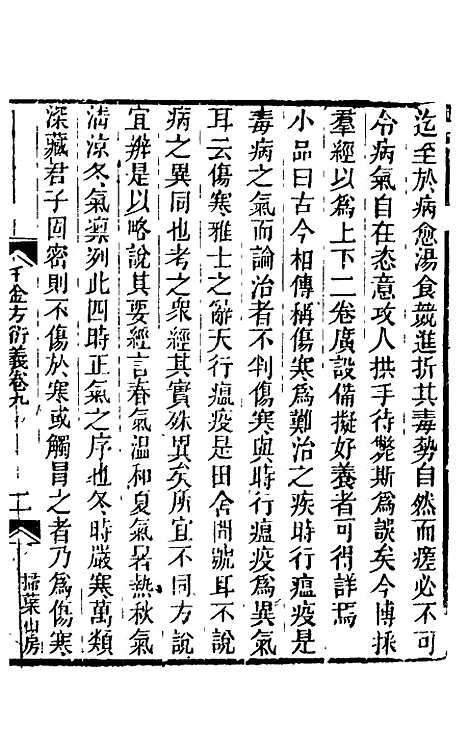 迄至於病愈湯食競進折其毒勢自然而瘥必不可
令病氣自在恣意攻人拱手待斃斯為誤矣今博採
羣經以為上下二卷廣設備擬好養者可得詳焉
小品曰古今相傳稱傷寒為難治之疾時行瘟疫是
毒病之氣而論治者不判傷寒與時行瘟疫為異氣
耳云傷寒雅士之辭天行瘟疫是田舍間號耳不說
病之異同也考之衆經其實殊異矣所宜不同方說
宜辨是以略說其要經言春氣溫和夏氣暑熱秋氣
清涼冬氣凛冽此四時正氣之序也冬時嚴寒萬類
深藏君子固密則不傷於寒或觸冒之者乃為傷寒
千金方衍義卷九
一
掃葉山房